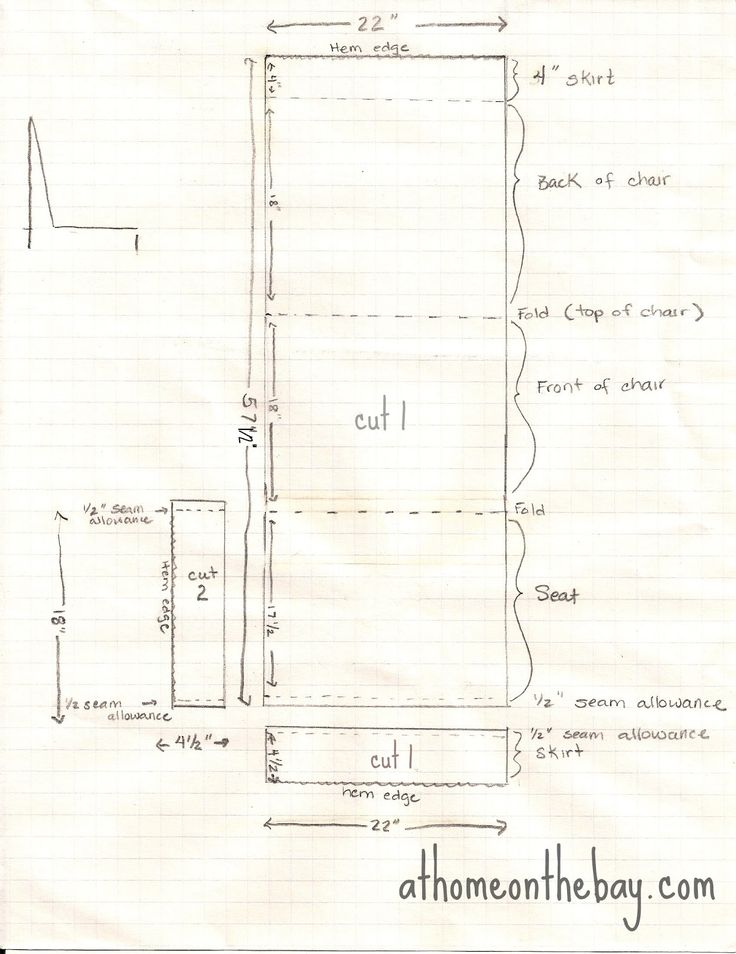 22"
Hem edge
4"
4" skirt
18"
Back of chair
Fold (top of chair)
18"
Front of chair
cut 1
57 1/2"
Fold
1/2" seam
allowance
Hem edge
cut
2
18"
17 1/2
Seat
1/2 seam
allowance
1/2" seam allowance
4 1/2"
4 1/2
cut 1
1/2" seam allowance
skirt
hem edge
22"
athomeonthebay.com